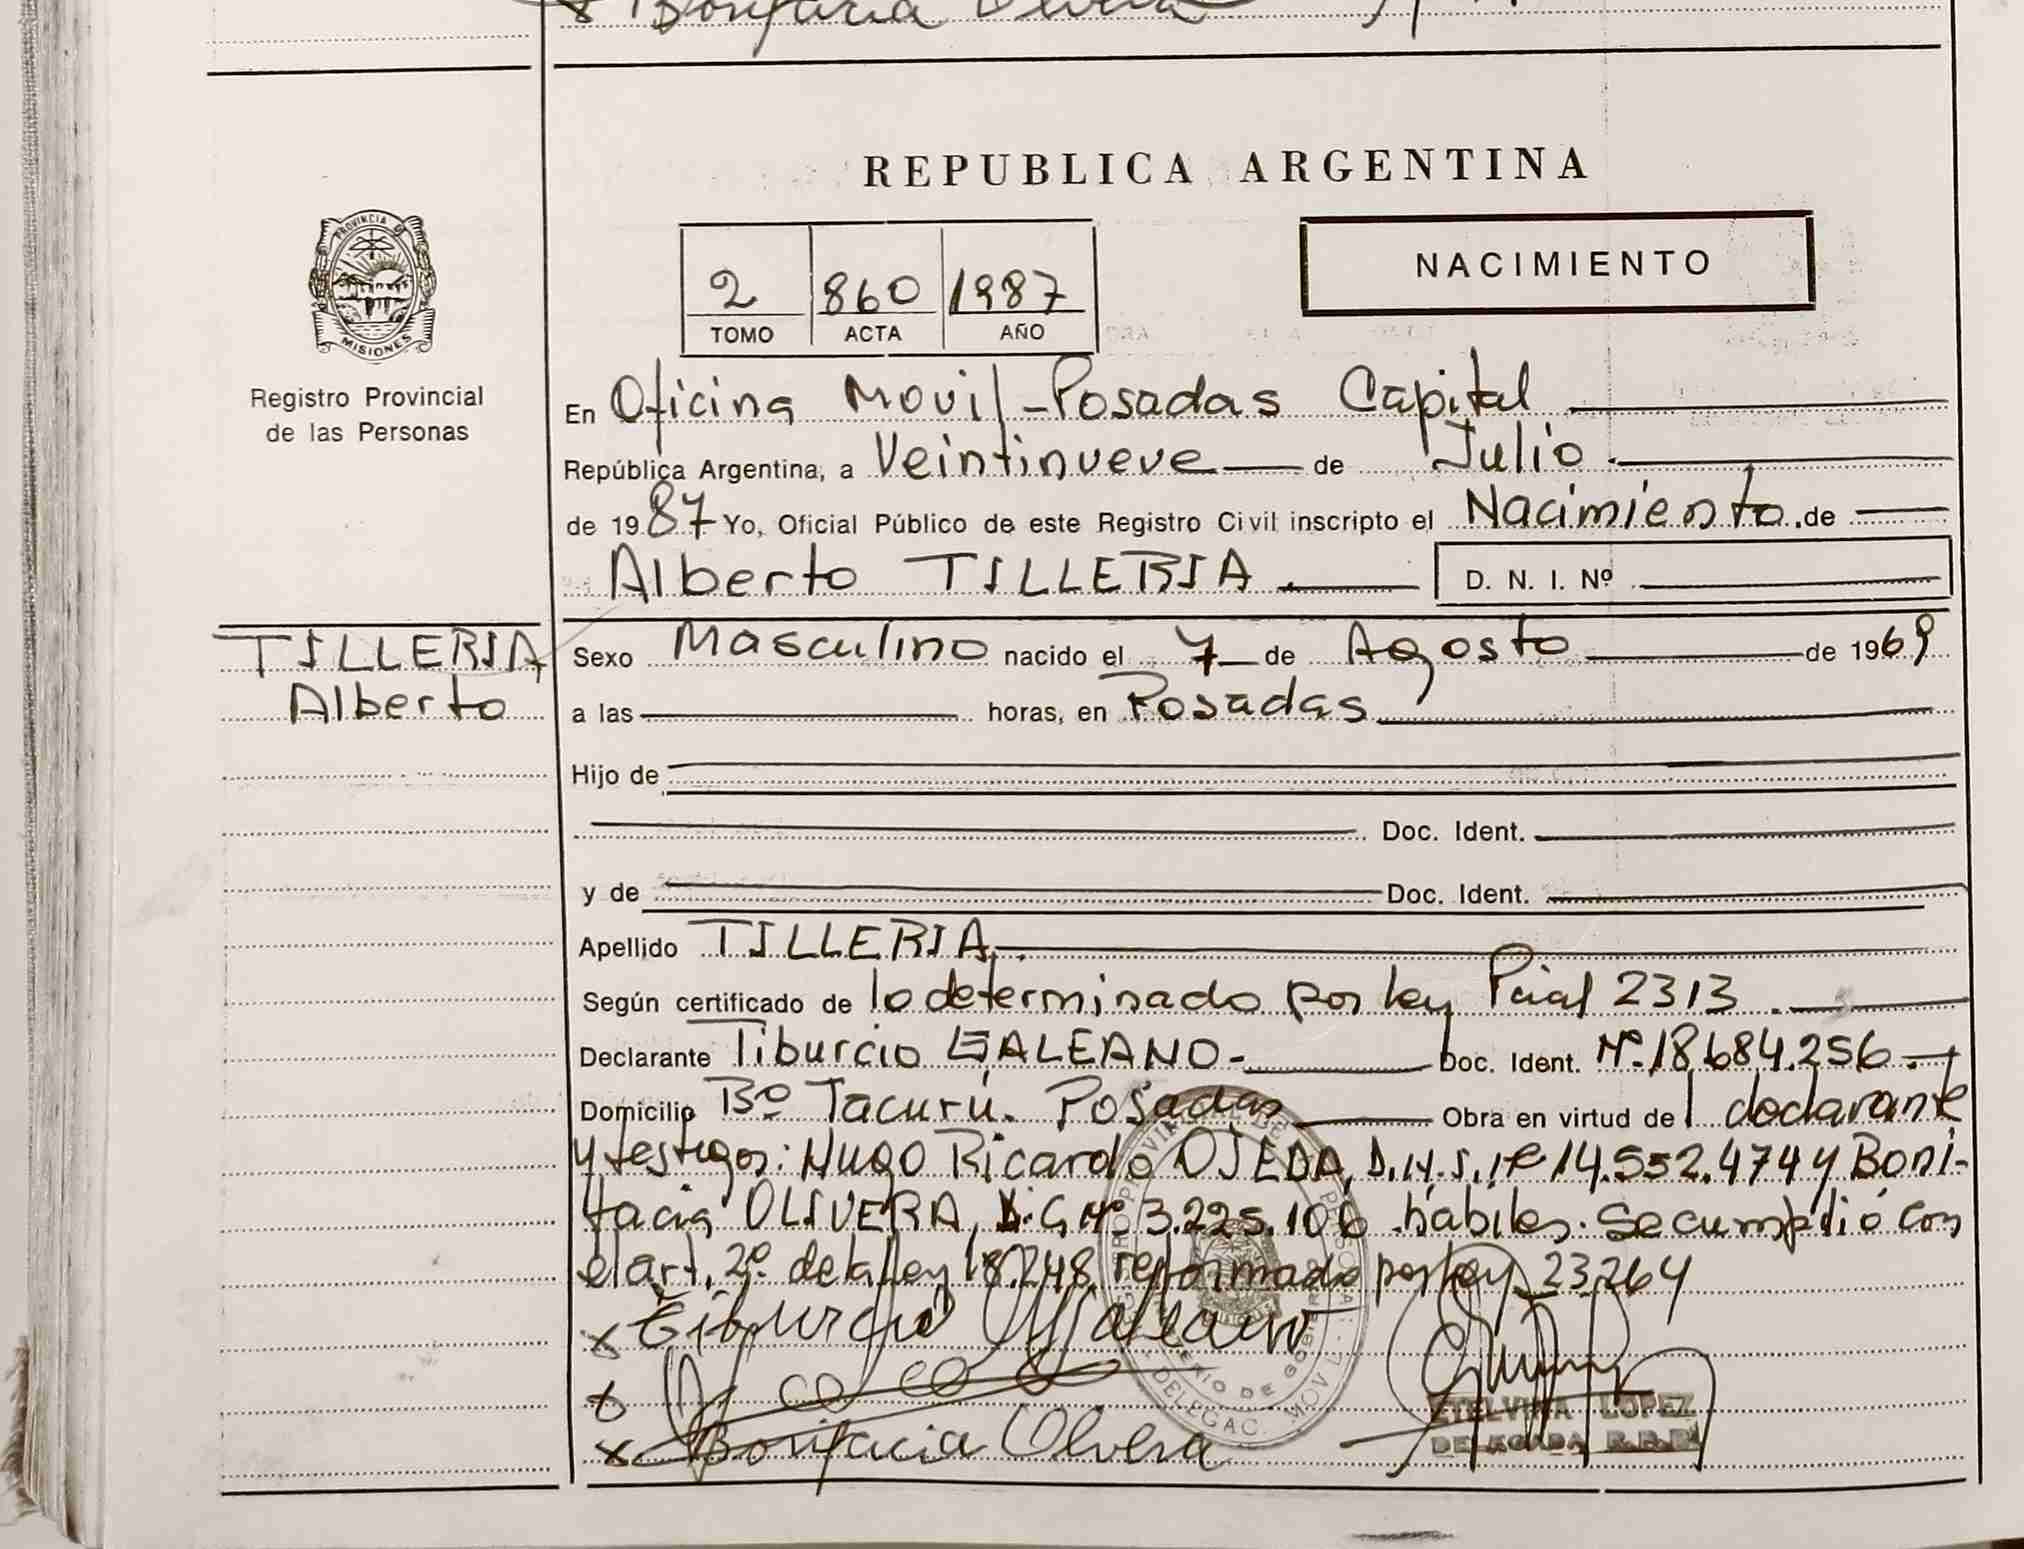 x Bonifacia Olvera
REPUBLICA ARGENTINA
PROVINCIA D
MISIONES
Registro Provincial
de las Personas
2 860 1987
TOMO ACTA AÑO
NACIMIENTO
En Oficina Movil-Posadas Capital
República Argentina, a Veintinueve de Julio.
de 1987 Yo, Oficial Público de este Registro Civil inscripto el Nacimiento de
Alberto TILLERIA. D. N. I. Nº
TILLERIA,
Alberto
Sexo Masculino nacido el 7 de Agosto de 1969
a las horas, en Posadas
Hijo de
Doc. Ident.
y de Doc. Ident.
Apellido TILLERIA.
Según certificado de lo determinado por ley Pcial 2313.
Declarante Tiburcio GALEANO- Doc. Ident. Nº.18.684.256.
Domicilio Bº Tacurú. Posadas Obra en virtud del declarante
y testigos: Hugo Ricardo OJEDA, D.N.I. Nº 14.552.474 y Boni-
facia OLIVERA, Nº 3.225.106 hábiles. Se cumplió con
el art. 2º. de la Ley 18.248 reformado por Ley 23264
x Tiburcio Galeano
x
x Bonifacia Olvera
ETELVINA LOPEZ
DELEGADA R.P.P.
DELEGAC. MOVIL